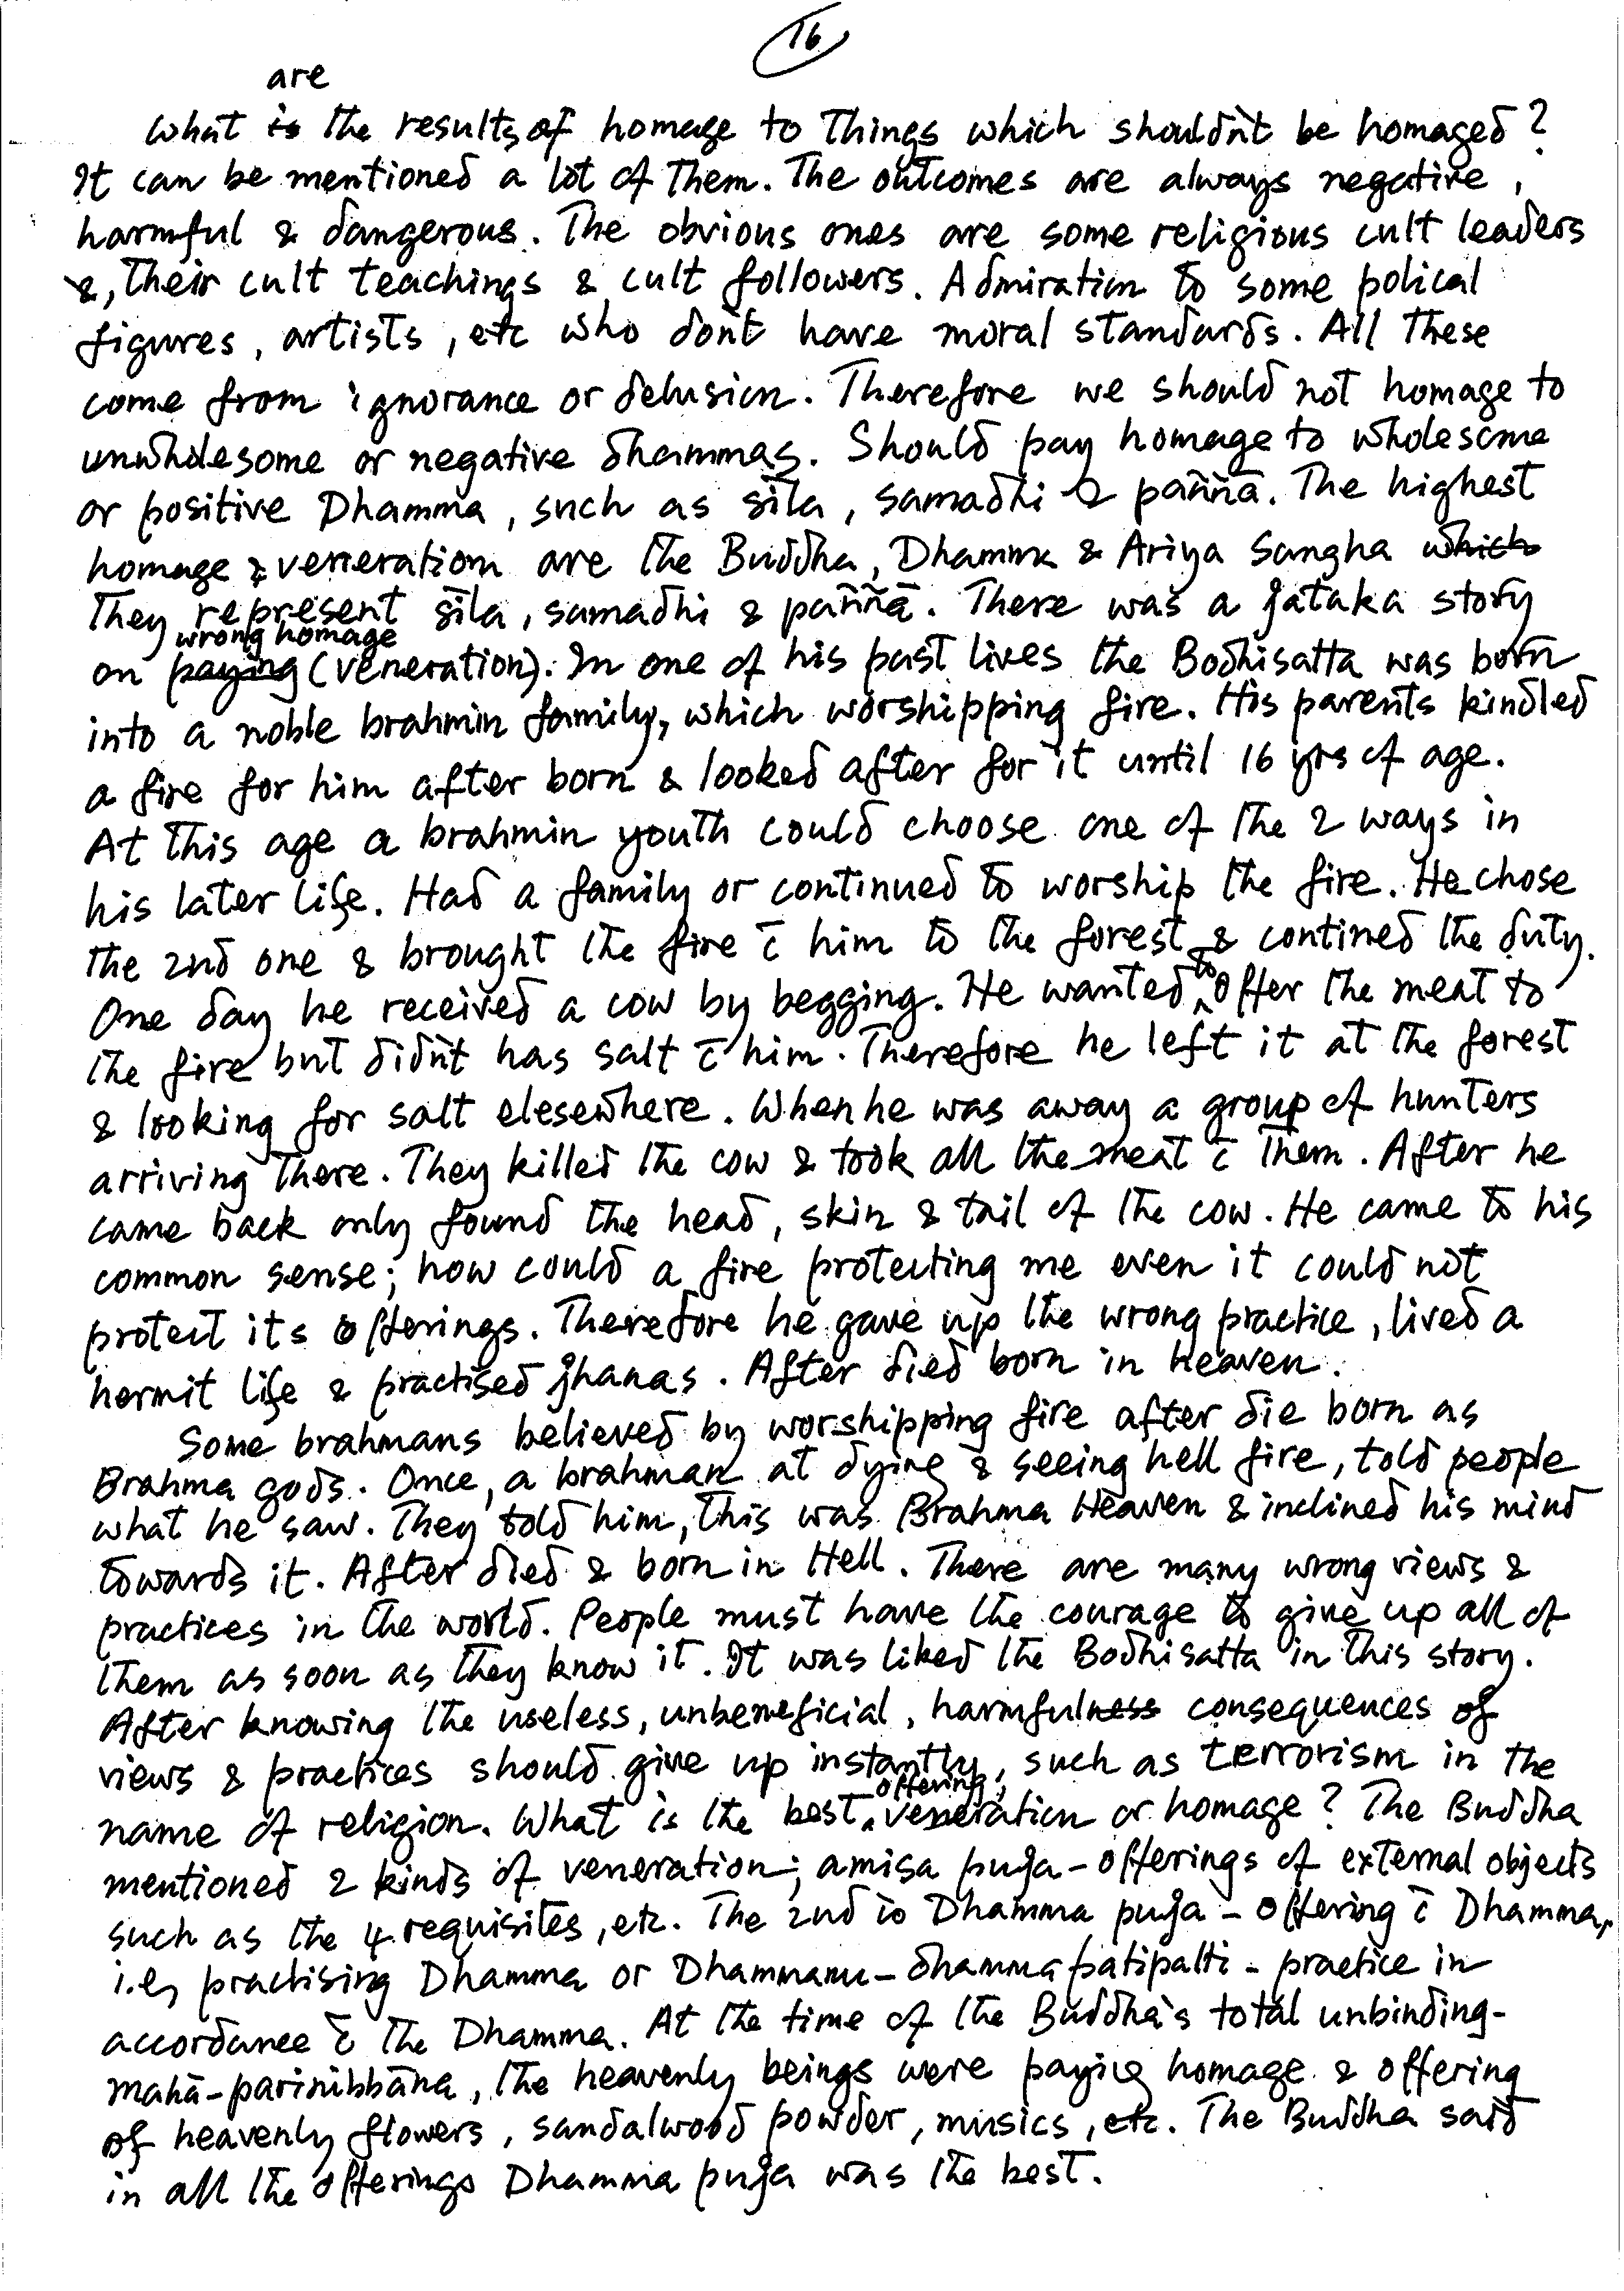 16
are
What is the results of homage to things which shouldn't be homaged?
It can be mentioned a lot of them. The outcomes are always negative,
harmful & dangerous. The obvious ones are some religious cult leaders
&, their cult teachings & cult followers. Admiration to some polical
figures, artists, etc who don't have moral standards. All these
come from ignorance or delusion. Therefore we should not homage to
unwholesome or negative dhammas. Should pay homage to wholesome
or positive Dhamma, such as sīla, samadhi & paññā. The highest
homage & veneration are the Buddha, Dhamma & Ariya Sangha which
They represent sīla, samadhi & paññā. There was a jātaka story
wrong homage
on paying (veneration). In one of his past lives the Bodhisatta was born
into a noble brahmin family, which worshipping fire. His parents kindled
a fire for him after born & looked after for it until 16 yrs of age.
At this age a brahmin youth could choose one of the 2 ways in
his later life. Had a family or continued to worship the fire. He chose
the 2nd one & brought the fire c̄ him to the forest & contined the duty.
One day he received a cow by begging. He wanted to offer the meat to
the fire but didn't has salt c̄ him. Therefore he left it at the forest
& looking for salt elesewhere. When he was away a group of hunters
arriving there. They killed the cow & took all the meat c̄ them. After he
came back only found the head, skin & tail of the cow. He came to his
common sense; how could a fire protecting me even it could not
protect its offerings. Therefore he gave up the wrong practice, lived a
hermit life & practised jhanas. After died born in heaven.
Some brahmans believed by worshipping fire after die born as
Brahma gods. Once, a brahman at dying & seeing hell fire, told people
what he saw. They told him, this was Brahma Heaven & inclined his mind
towards it. After died & born in Hell. There are many wrong views &
practices in the world. People must have the courage to give up all of
them as soon as they know it. It was liked the Bodhisatta in this story.
After knowing the useless, unbeneficial, harmfulness consequences of
views & practices should give up instantly, such as terrorism in the
offering,
name of religion. What is the best veneration or homage? The Buddha
mentioned 2 kinds of veneration; amisa puja - offerings of external objects
such as the 4 requisites, etc. The 2nd is Dhamma puja - offering c̄ Dhamma,
i.e, practising Dhamma or Dhammanu-dhamma patipatti - practice in
accordance c̄ the Dhamma. At the time of the Buddha's total unbinding-
mahā-parinibbāna, the heavenly beings were paying homage & offering
of heavenly flowers, sandalwood powder, musics, etc. The Buddha said
in all the offerings Dhamma puja was the best.